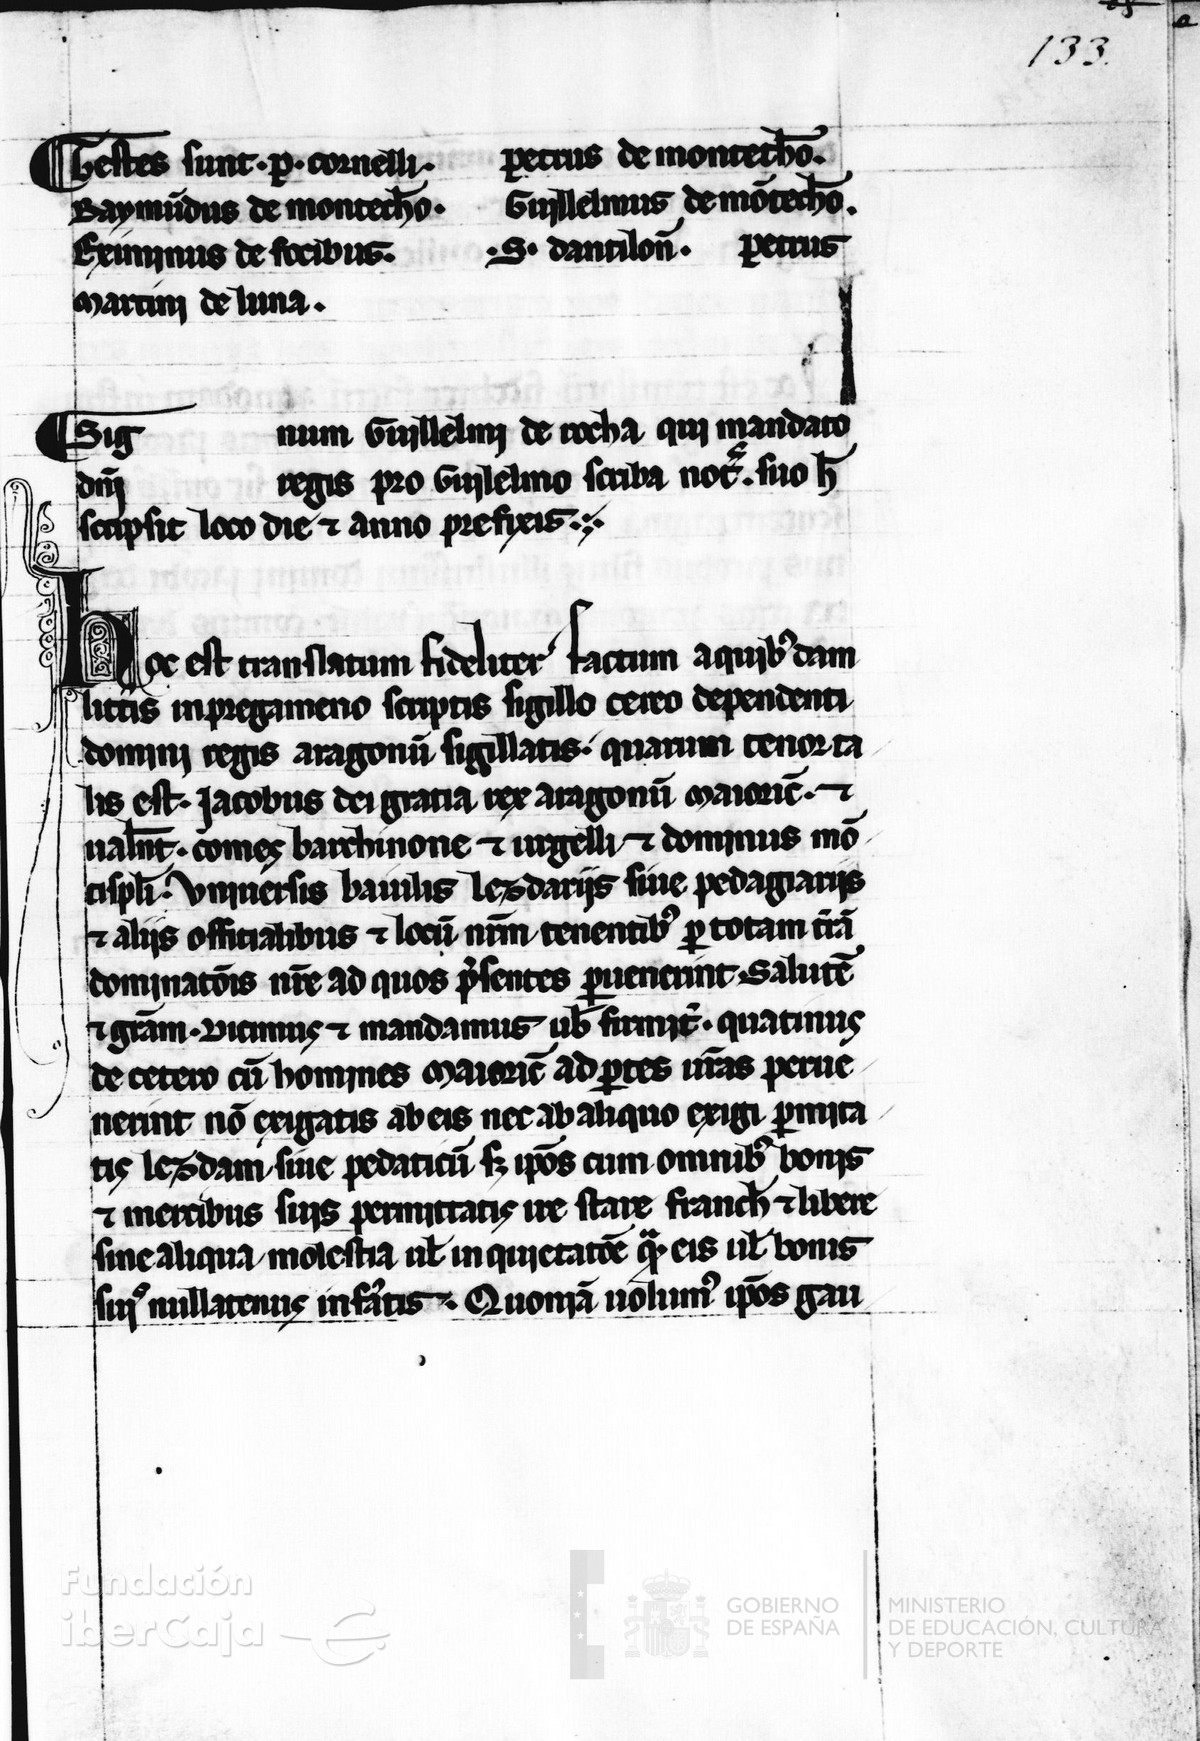 133.
Testes sunt · p · cornelli · petrus de montecħo.
Raymūdus de montecħo · Guillelmus de mōtecħo.
Eximinus de focibus. · S · dantilon̄ · petrus
martini de luna.
Sig num Guillelmi de rocha qui mandato
dn̄i regis pro Guilelmo scriba not̄. suo h̄
scripsit loco die ⁊ anno prefixis
Hoc est translatum fideliter factum a quibꝰdam
litt̄is in pregameno scriptis sigillo cereo dependenti
domini regis aragonū sigillatis · quarum tenor ta
lis est · Jacobus dei gratia rex aragonū maioric̄ · ⁊
ualn̄t · comes barchinone ⁊ urgelli ⁊ dominus mō
tispłi · Vniuersis baiulis lezdariis siue pedagiariis
⁊ aliis officialibus ⁊ locū nr̄m tenentibꝰ ꝑ totam tr̄ā
dominatōis nr̄e ad quos p̄sentes ꝑuenerint · Salutē
⁊ gr̄am · Dicimus ⁊ mandamus uob̄ firmit̄ · quatinus
de cetero cū homines maioric̄ ad ꝑtes ur̄as perue
nerint nō exigatis ab eis nec ab aliquo exigi ꝑmita
tis lezdam siue pedaticū sꝫ ip̄os cum omnibꝰ bonis
⁊ mercibus suis permittatis ire stare francħ ⁊ libere
sine aliqua molestia uł inquietatōe q̄ · eis uł bonis
suis nullatenus inf̄atis · Quoniā uolumꝰ ip̄os gau
Fundación
iberCaja
GOBIERNO
DE ESPAÑA
MINISTERIO
DE EDUCACIÓN, CULTURA
Y DEPORTE